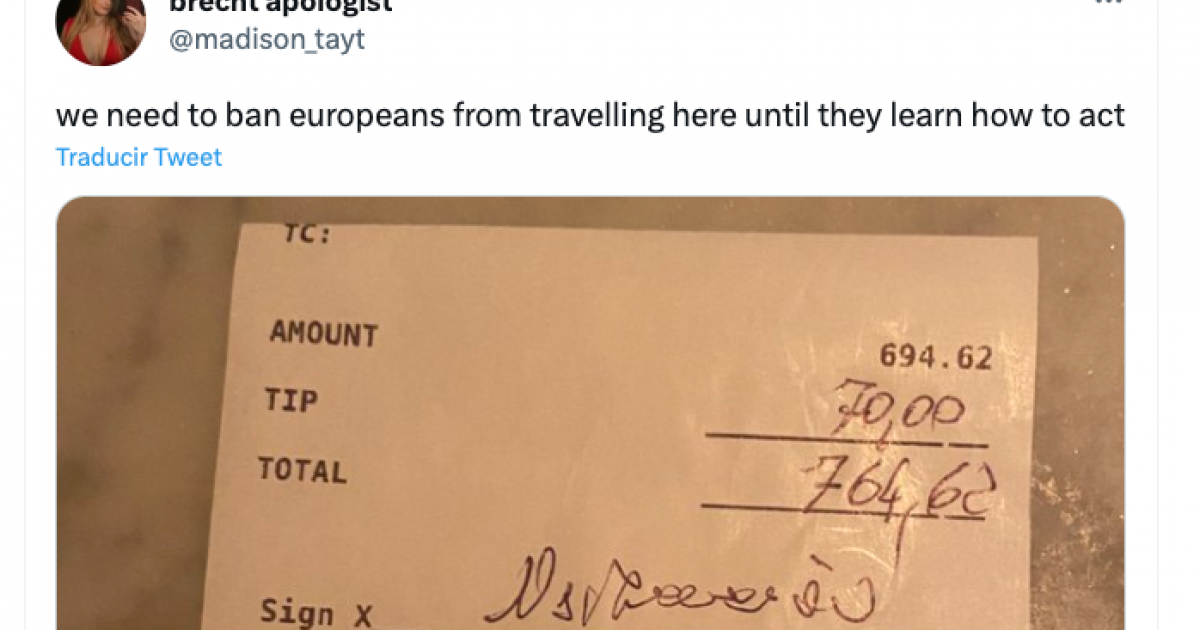 brecht apologist
@madison_tayt
we need to ban europeans from travelling here until they learn how to act
Traducir Tweet
TC:
AMOUNT 694.62
TIP 70,00
TOTAL 764,62
Sign X